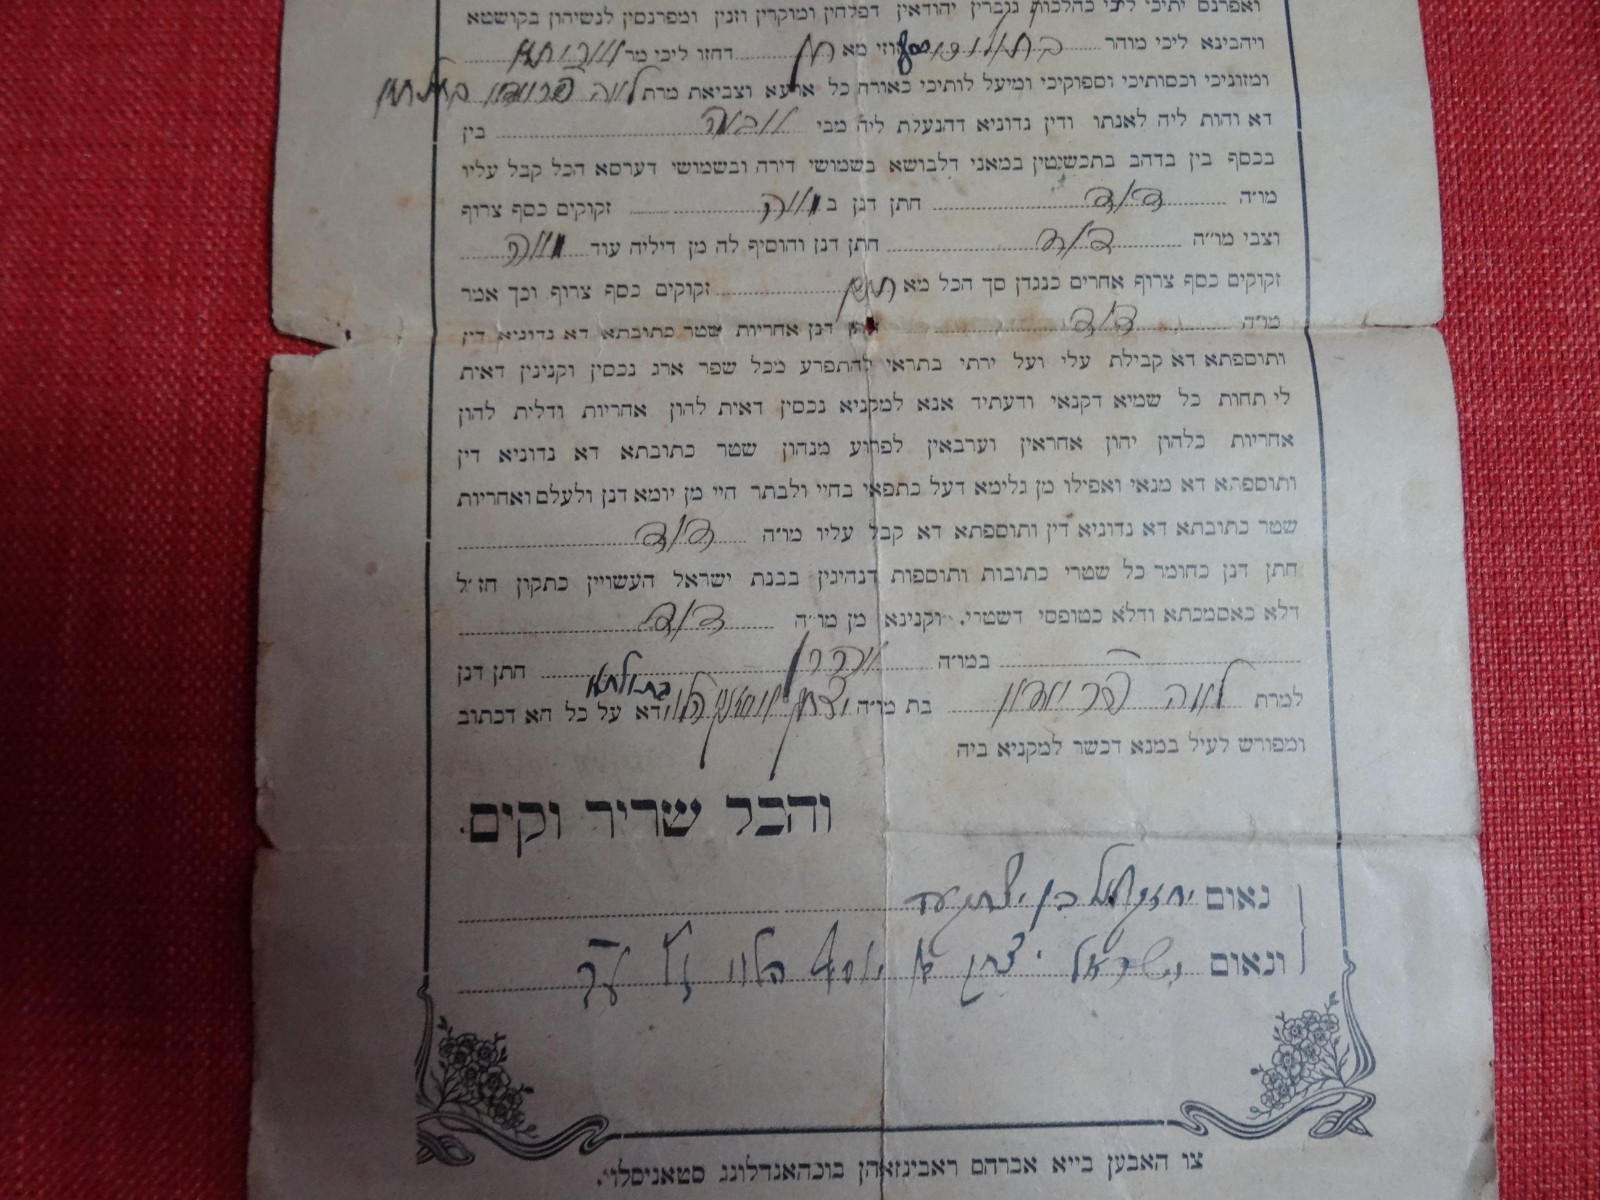 ואפרנס יתיכי ליכי כהלכות גוברין יהודאין דפלחין ומוקרין וזנין ומפרנסין לנשיהון בקושטא
ויהבינא ליכי מוהר בתולות זוזי מא תן דחזו ליכי מד
ומזוניכי וכסותיכי וספוקיכי ומיעל לותיכי כאורח כל ארעא וצביאת מרת בתולתא
דא והות ליה לאנתו ודין נדוניא דהנעלת ליה מבי בין
בכסף בין בדהב בתכשיטין במאני דלבושא בשמושי דירה ובשמושי דערסא הכל קבל עליו
מו״ה דוד חתן דנן ב מאה זקוקים כסף צרוף
וצבי מו״ה דוד חתן דנן והוסיף לה מן דיליה עוד מאה
זקוקים כסף צרוף אחרים כנגדן סך הכל מא זקוקים כסף צרוף וכך אמר
מו״ה דוד חתן דנן אחריות שטר כתובתא דא נדוניא דין
ותוספתא דא קבילת עלי ועל ירתי בתראי להתפרע מכל שפר ארג נכסין וקנינין דאית
לי תחות כל שמיא דקנאי ודעתיד אנא למקניא נכסין דאית להון אחריות ודלית להון
אחריות כלהון יהון אחראין וערבאין לפרוע מנהון שטר כתובתא דא נדוניא דין
ותוספתא דא מנאי ואפילו מן גלימא דעל כתפאי בחיי ולבתר חיי מן יומא דנן ולעלם ואחריות
שטר כתובתא דא נדוניא דין ותוספתא דא קבל עליו מו״ה דוד
חתן דנן כחומר כל שטרי כתובות ותוספות דנהיגין בבנת ישראל העשויין כתקון חז״ל
דלא כאסמכתא ודלא כטופסי דשטרי, וקנינא מן מו״ה דוד
במו״ה חתן דנן
למרת בת מו״ה יצחק הלוי בתולתא דא על כל הא דכתוב
ומפורש לעיל במנא דכשר למקניא ביה
והכל שריר וקים.
נאום יחזקאל בן יצחק עד
ונאום ישראל יצחק הלוי ז״ל עד
צו האבען בייא אברהם ראבינזאהן בוכהאנדלונג סטאניסלוי.